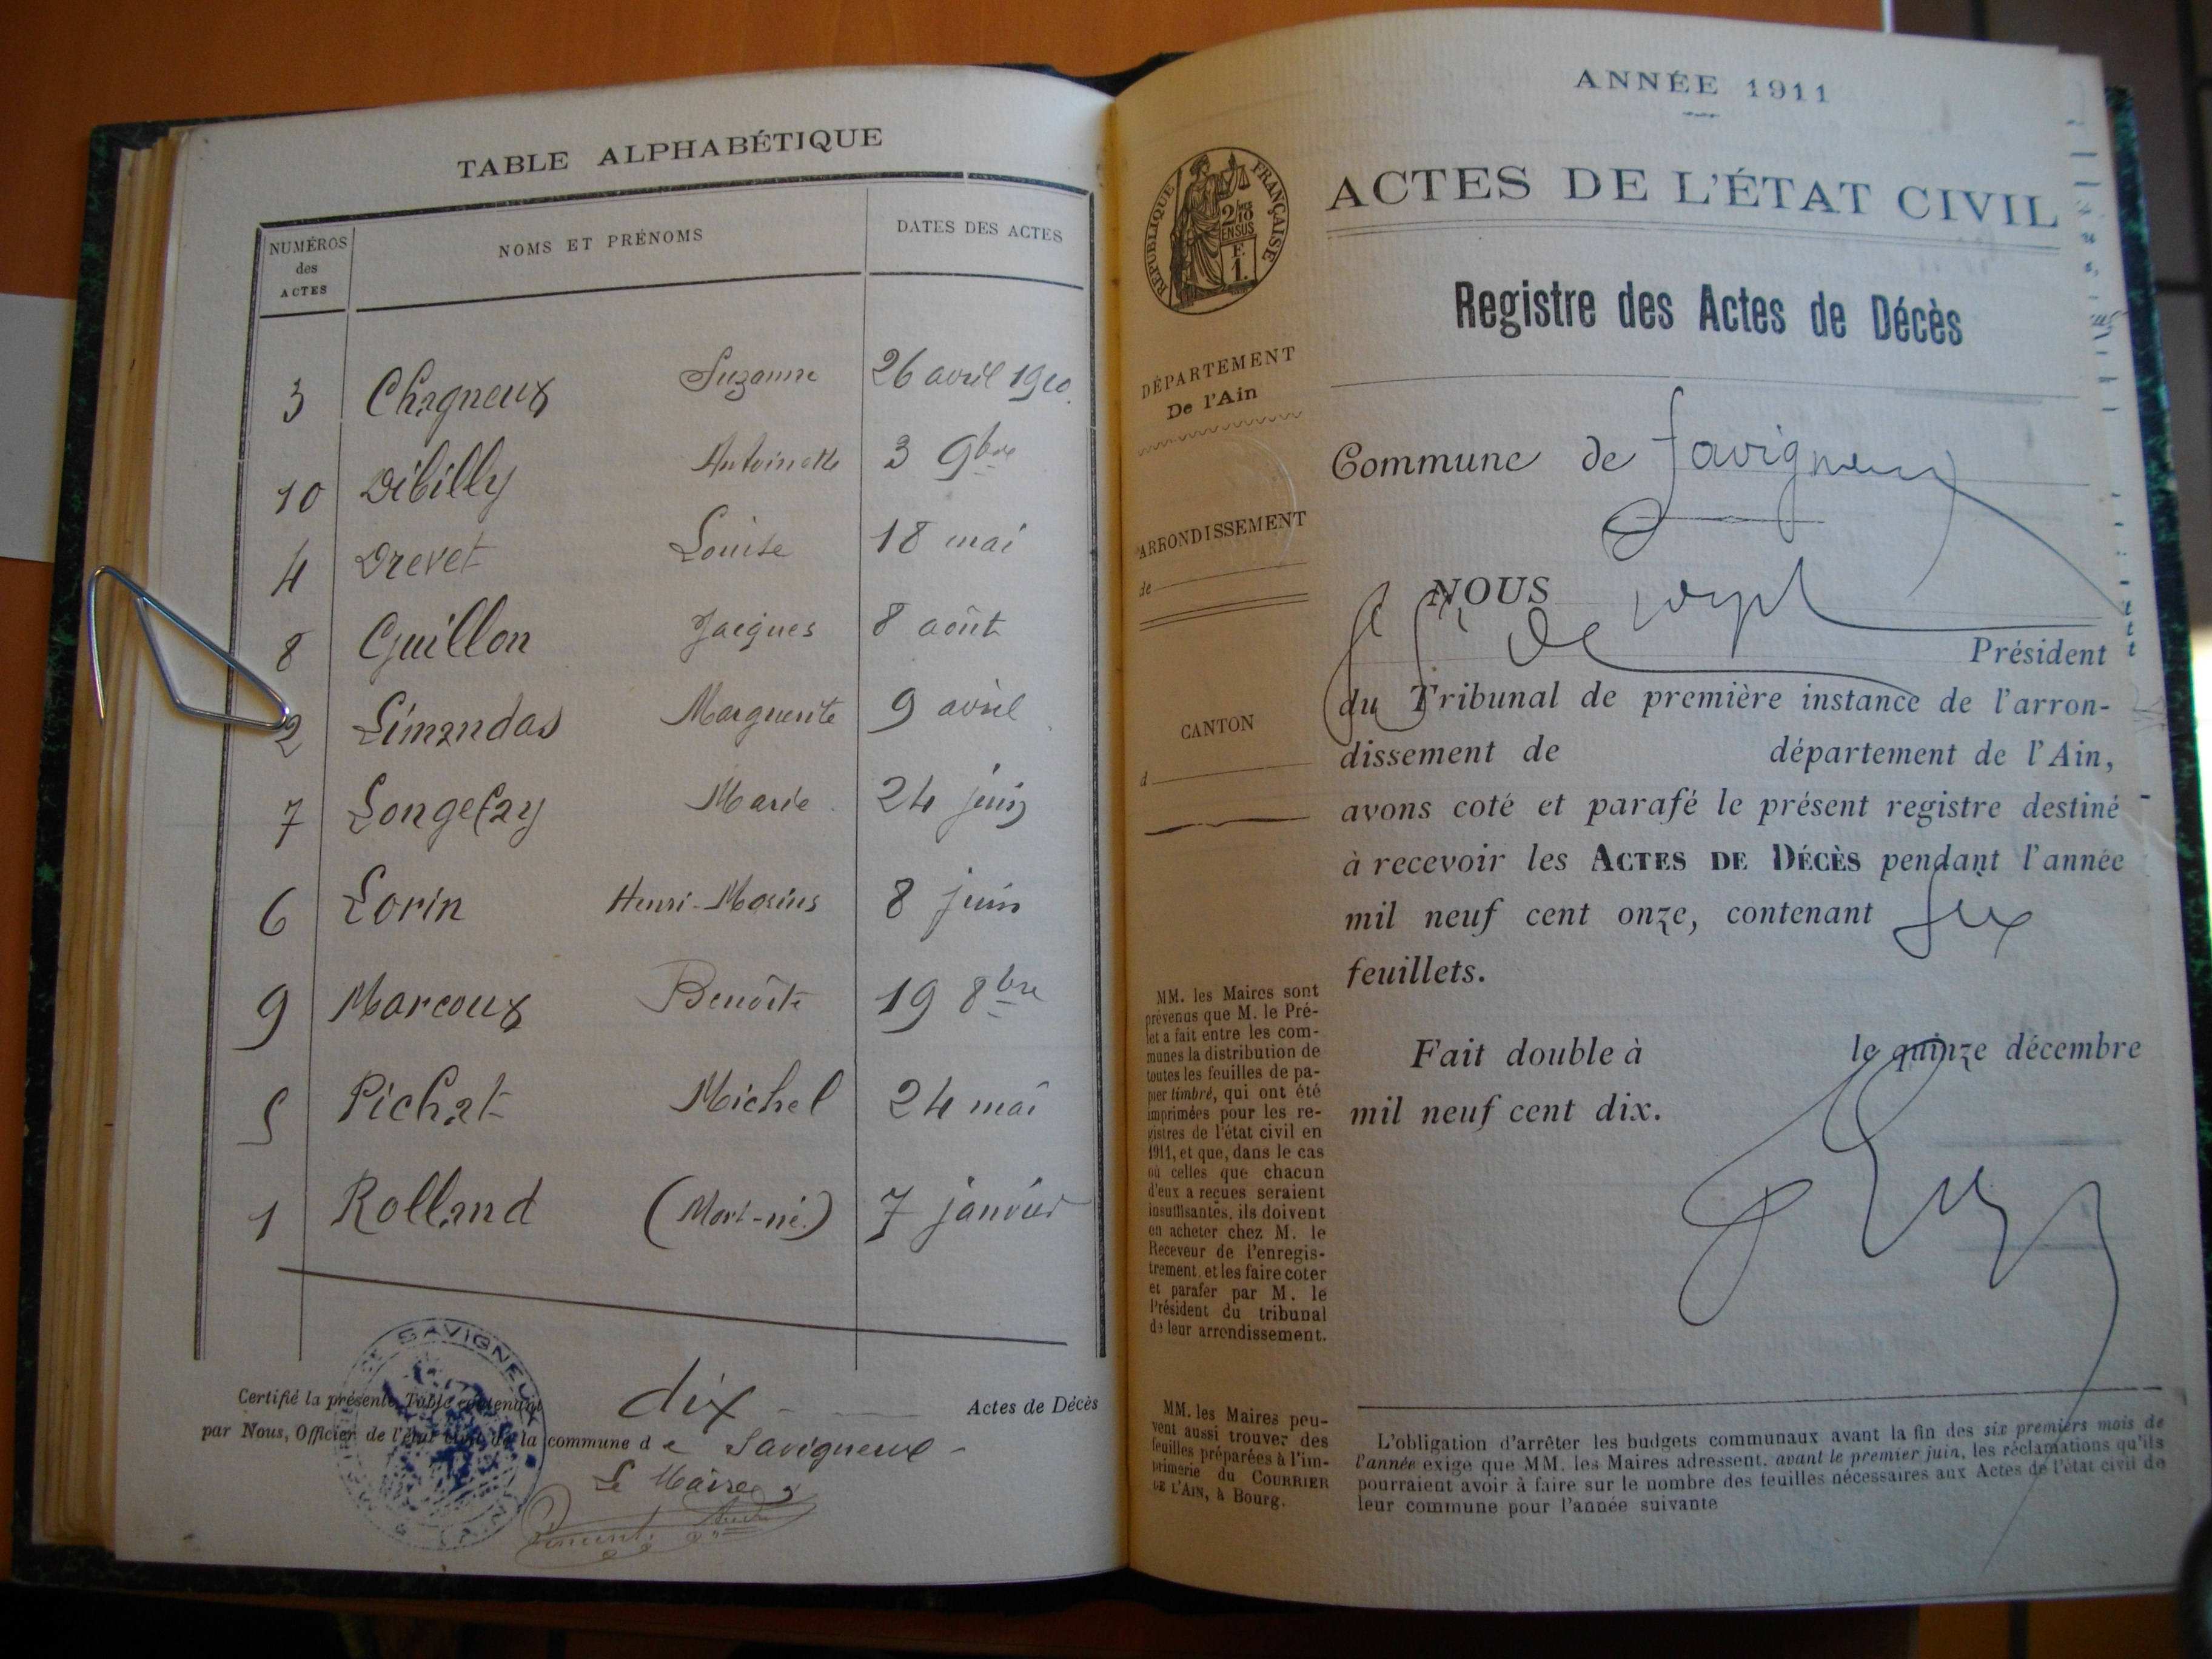 TABLE ALPHABÉTIQUE
NUMÉROS des ACTES
NOMS ET PRÉNOMS
DATES DES ACTES
3 Chagneux Suzanne 26 avril 1910.
10 Dibilly Antoinette 3 9bre
4 Drevet Louise 18 mai
8 Guillon Jacques 8 août
2 Limandas Marguerite 9 avril
7 Longefay Marie 24 juin
6 Lorin Henri-Marius 8 juin
9 Marcoux Benoîte 19 8bre
5 Pichat Michel 24 mai
1 Rolland (Mort-né.) 7 janvier
SAVIGNEUX
Certifié la présente Table contenant dix Actes de Décès
par Nous, Officier de l'état civil de la commune de Savigneux
Le Maire
ANNÉE 1911
ACTES DE L'ÉTAT CIVIL
RÉPUBLIQUE FRANÇAISE
2/10 EN SUS
F.
1.
Registre des Actes de Décès
DÉPARTEMENT
De l'Ain
ARRONDISSEMENT
de
CANTON
d
Commune de Savigneux
NOUS
Président
du Tribunal de première instance de l'arron-
dissement de département de l'Ain,
avons coté et parafé le présent registre destiné
à recevoir les ACTES DE DÉCÈS pendant l'année
mil neuf cent onze, contenant six
feuillets.
Fait double à le quinze décembre
mil neuf cent dix.
MM. les Maires sont
prévenus que M. le Pré-
fet a fait entre les com-
munes la distribution de
toutes les feuilles de pa-
pier timbré, qui ont été
imprimées pour les re-
gistres de l'état civil en
1911, et que, dans le cas
où celles que chacun
d'eux a reçues seraient
insuffisantes, ils doivent
en acheter chez M. le
Receveur de l'enregis-
trement, et les faire coter
et parafer par M. le
Président du tribunal
de leur arrondissement.
MM. les Maires peu-
vent aussi trouver des
feuilles préparées à l'im-
primerie du COURRIER
DE L'AIN, à Bourg.
L'obligation d'arrêter les budgets communaux avant la fin des six premiers mois de
l'année exige que MM. les Maires adressent, avant le premier juin, les réclamations qu'ils
pourraient avoir à faire sur le nombre des feuilles nécessaires aux Actes de l'état civil de
leur commune pour l'année suivante